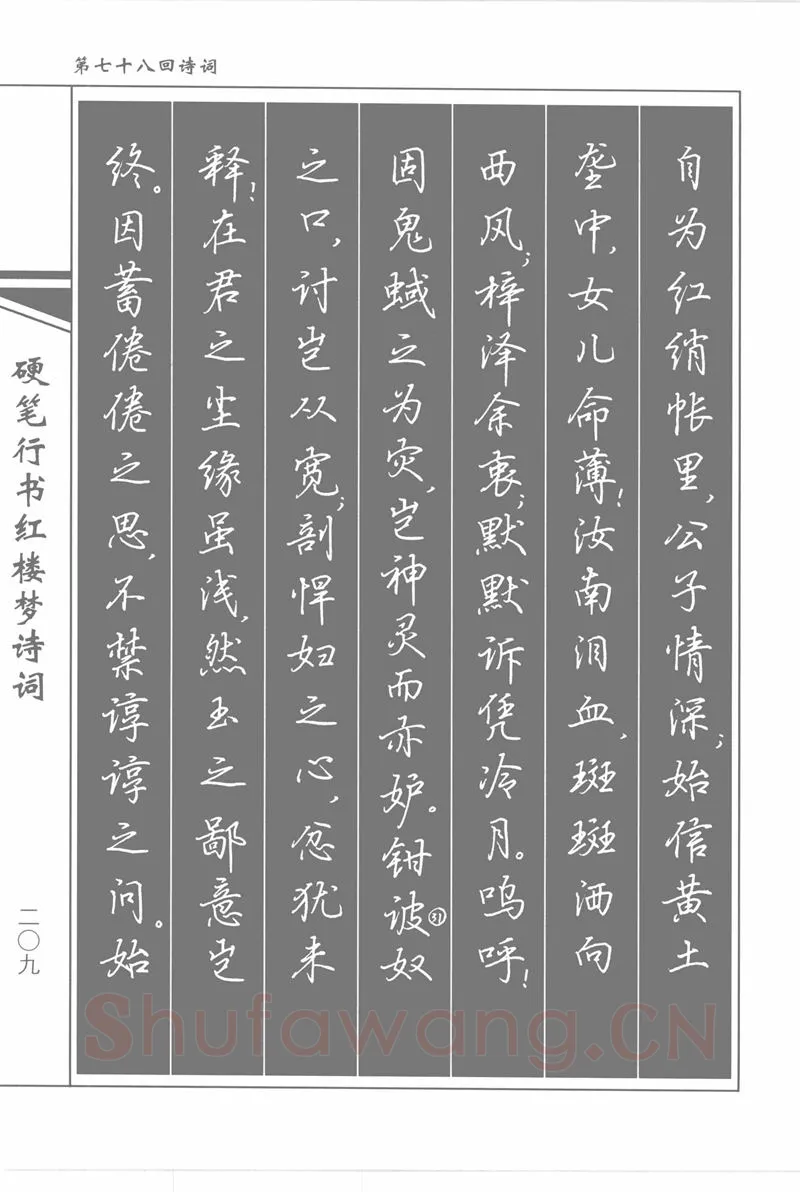 第七十八回诗词
自为红绡帐里，公子情深；始信黄土
垄中，女儿命薄！汝南泪血，斑斑洒向
西风；梓泽余衷，默默诉凭冷月。呜呼！
固鬼蜮之为灾，岂神灵而亦妒。钳诐奴
之口，讨岂从宽；剖悍妇之心，忿犹未
释！在君之尘缘虽浅，然玉之鄙意岂
终。因蓄惓惓之思，不禁谆谆之问。始
硬笔行书红楼梦诗词
二〇九
Shufawang.CN